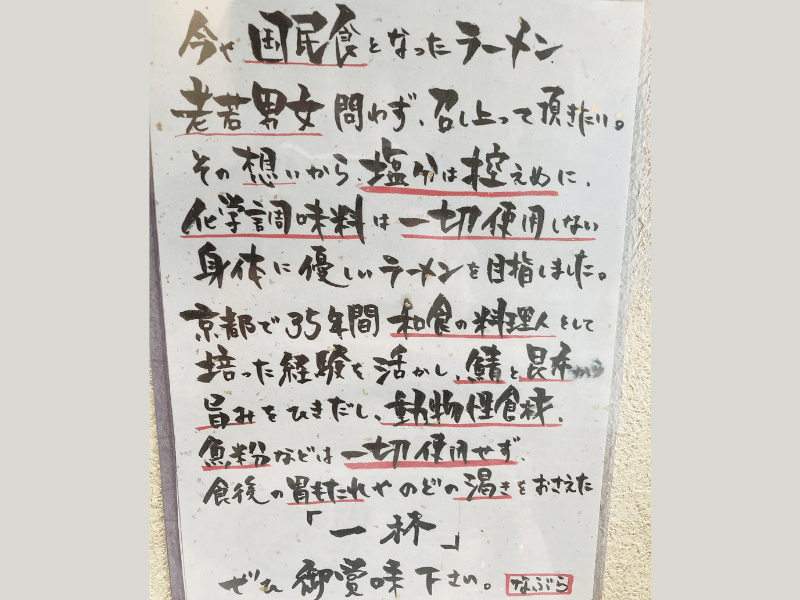 今や国民食となったラーメン
老若男女問わず、召し上って頂きたい。
その想いから、塩分は控えめに、
化学調味料は一切使用しない
身体に優しいラーメンを目指しました。
京都で35年間和食の料理人をして
培った経験を活かし、鯖と昆布から
旨みをひきだし、動物性食材、
魚粉などは一切使用せず、
食後の胃もたれやのどの渇きをおさえた
「一杯」
ぜひ御賞味下さい。 なぶら